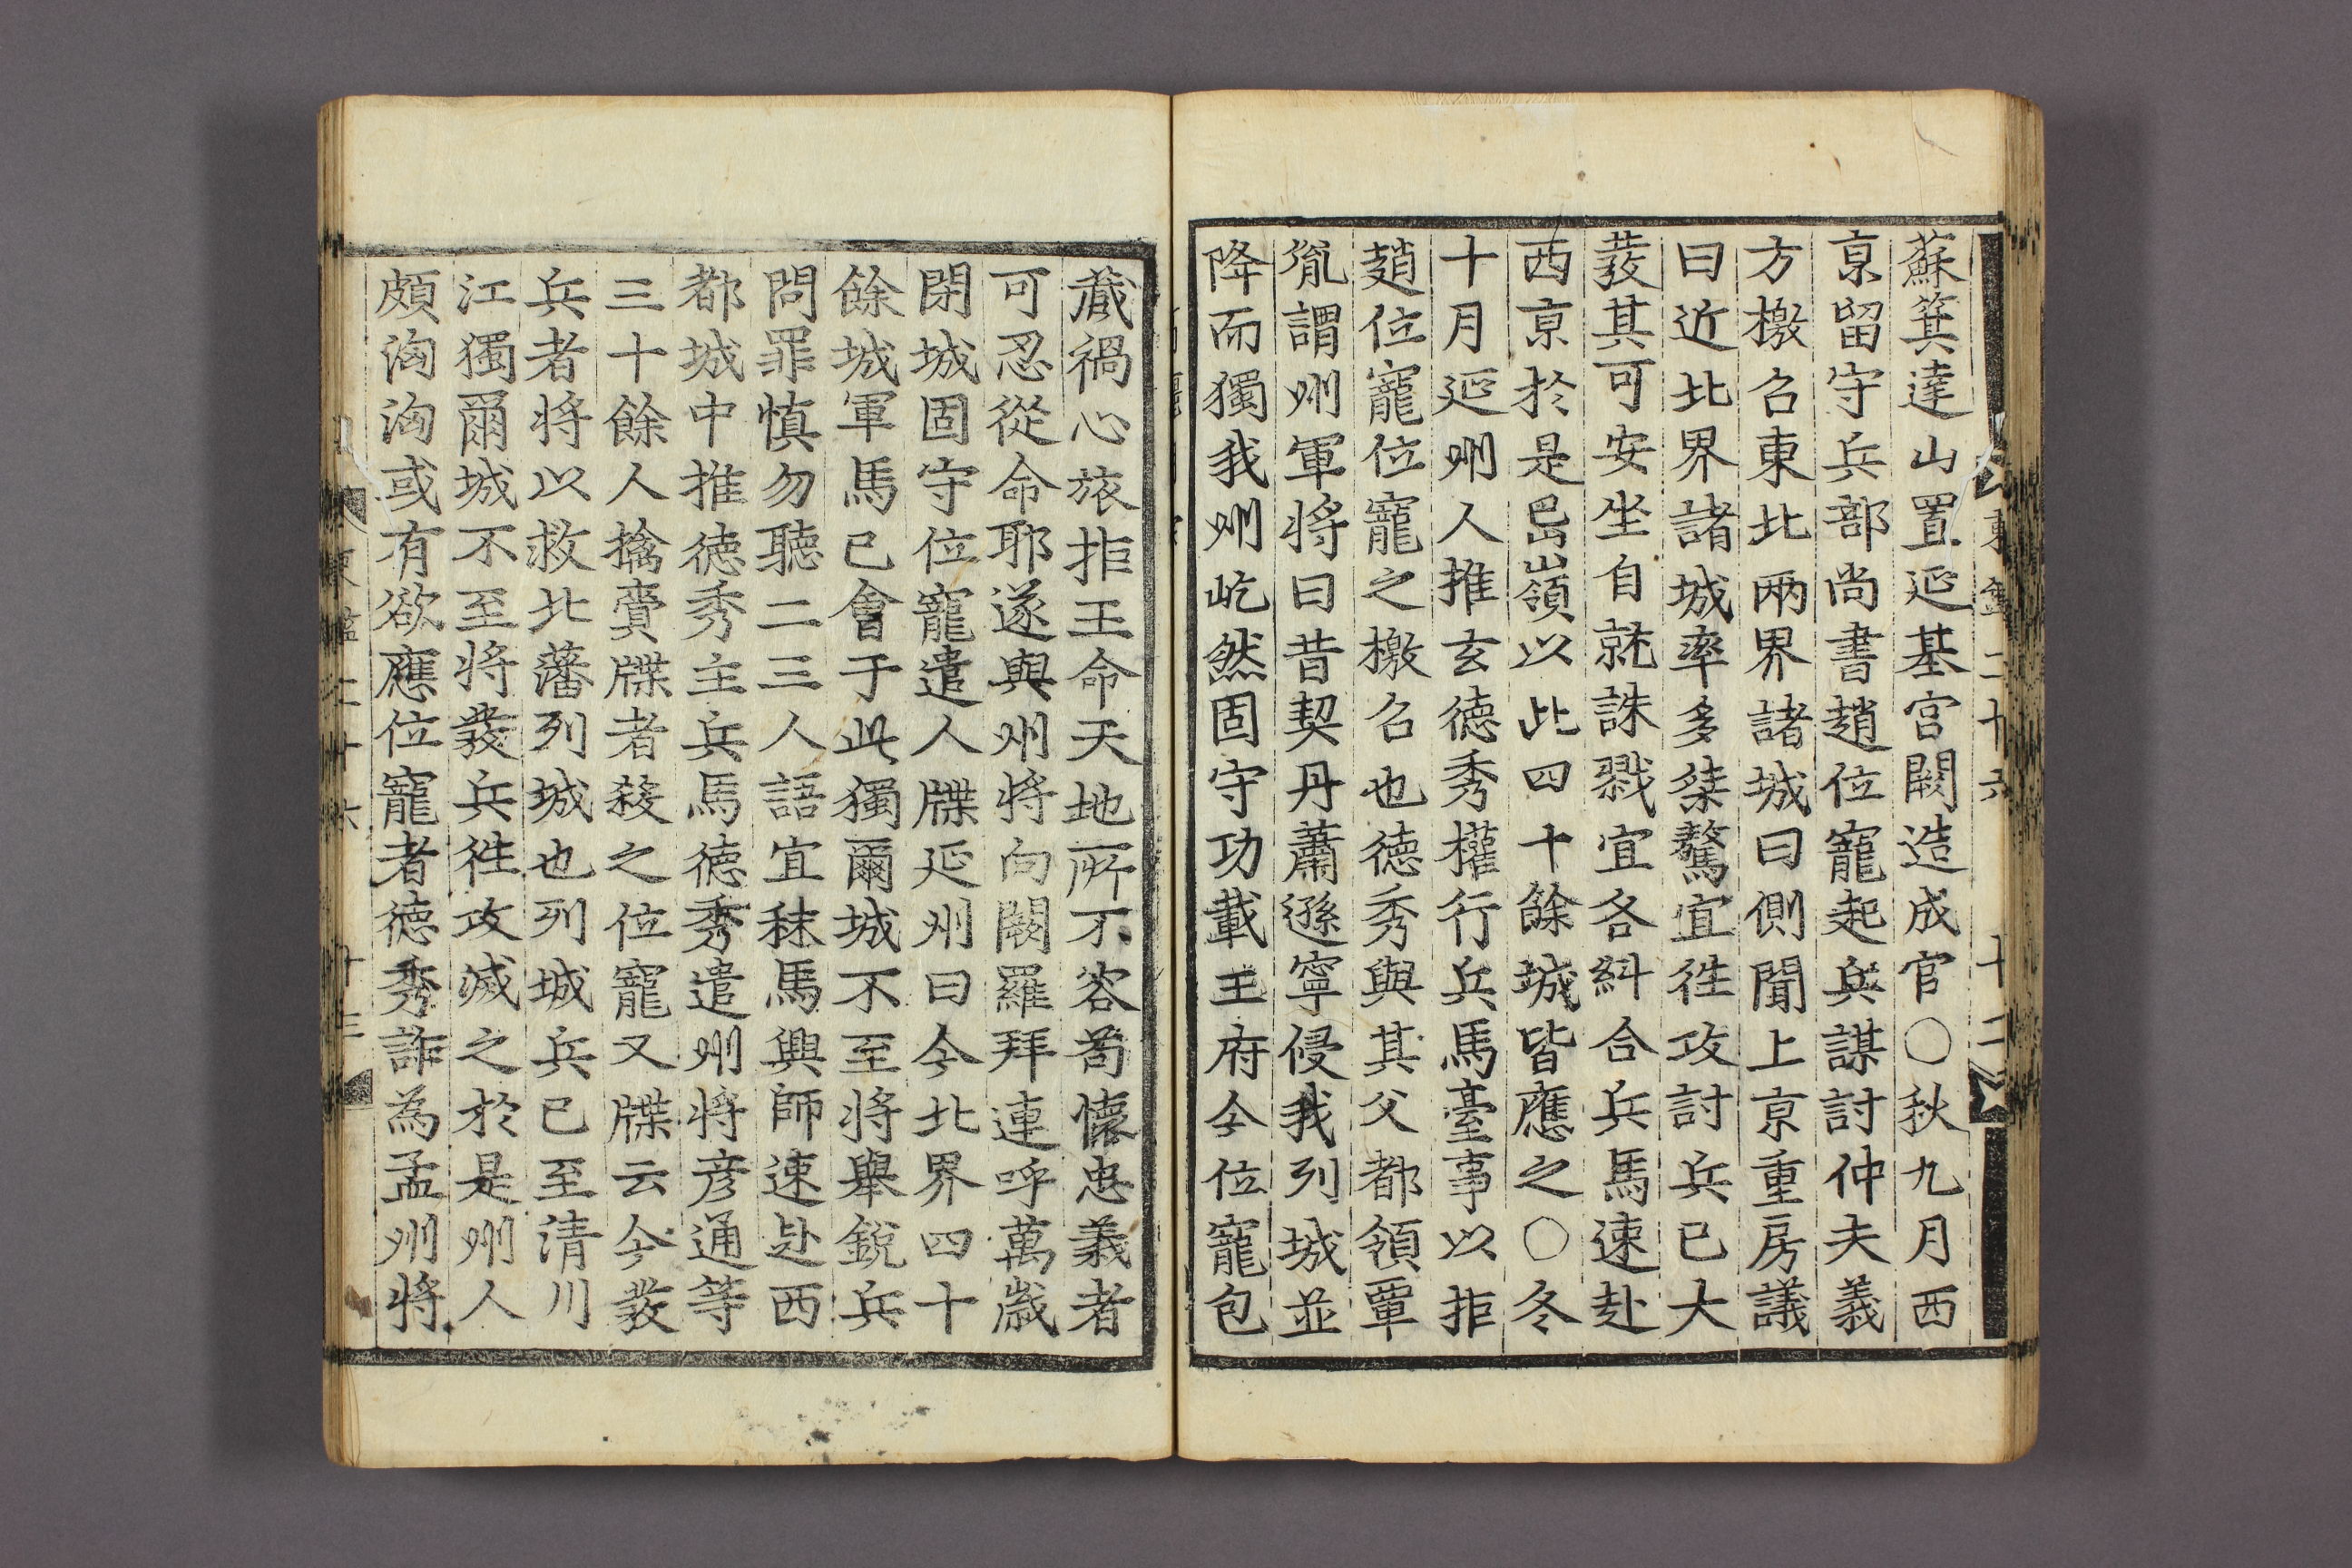 蘇箕達山置延基宮闕造成官○秋九月西
京留守兵部尚書趙位寵起兵謀討仲夫義
方檄召東北兩界諸城曰側聞上京重房議
曰近北界諸城率多桀驁宜徃攻討兵已大
發其可安坐自就誅戮宜各糾合兵馬速赴
西京於是岊嶺以北四十餘城皆應之○冬
十月延州人推玄德秀權行兵馬臺事以拒
趙位寵位寵之檄召也德秀與其父都領覃
胤謂州軍將曰昔契丹蕭遜寧侵我列城並
降而獨我州屹然固守功載王府今位寵包
藏禍心旅拒王命天地所不容苟懷忠義者
可忍從命耶遂與州將向闕羅拜連呼萬歲
閉城固守位寵遣人牒延州曰今北界四十
餘城軍馬已會于此獨爾城不至將舉銳兵
問罪慎勿聽二三人語宜秣馬興師速赴西
都城中推德秀主兵馬德秀遣州將彦通等
三十餘人擒賫牒者殺之位寵又牒云今發
兵者將以救北藩列城也列城兵已至清川
江獨爾城不至將發兵徃攻滅之於是州人
頗洶洶或有欲應位寵者德秀詐為孟州將
東鑑二十六 十二
東鑑二十六 十三